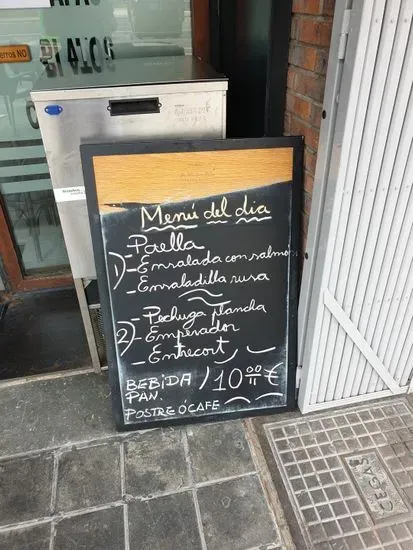 erros NO
Menú del dia
Paella
1) - Ensalada con salmo
- Ensaladilla rusa
2) - Pechuga plancha
- Emperador
- Entrecort
BEBIDA / 10 00 €
PAN.
POSTRE Ó CAFE
CEGAS